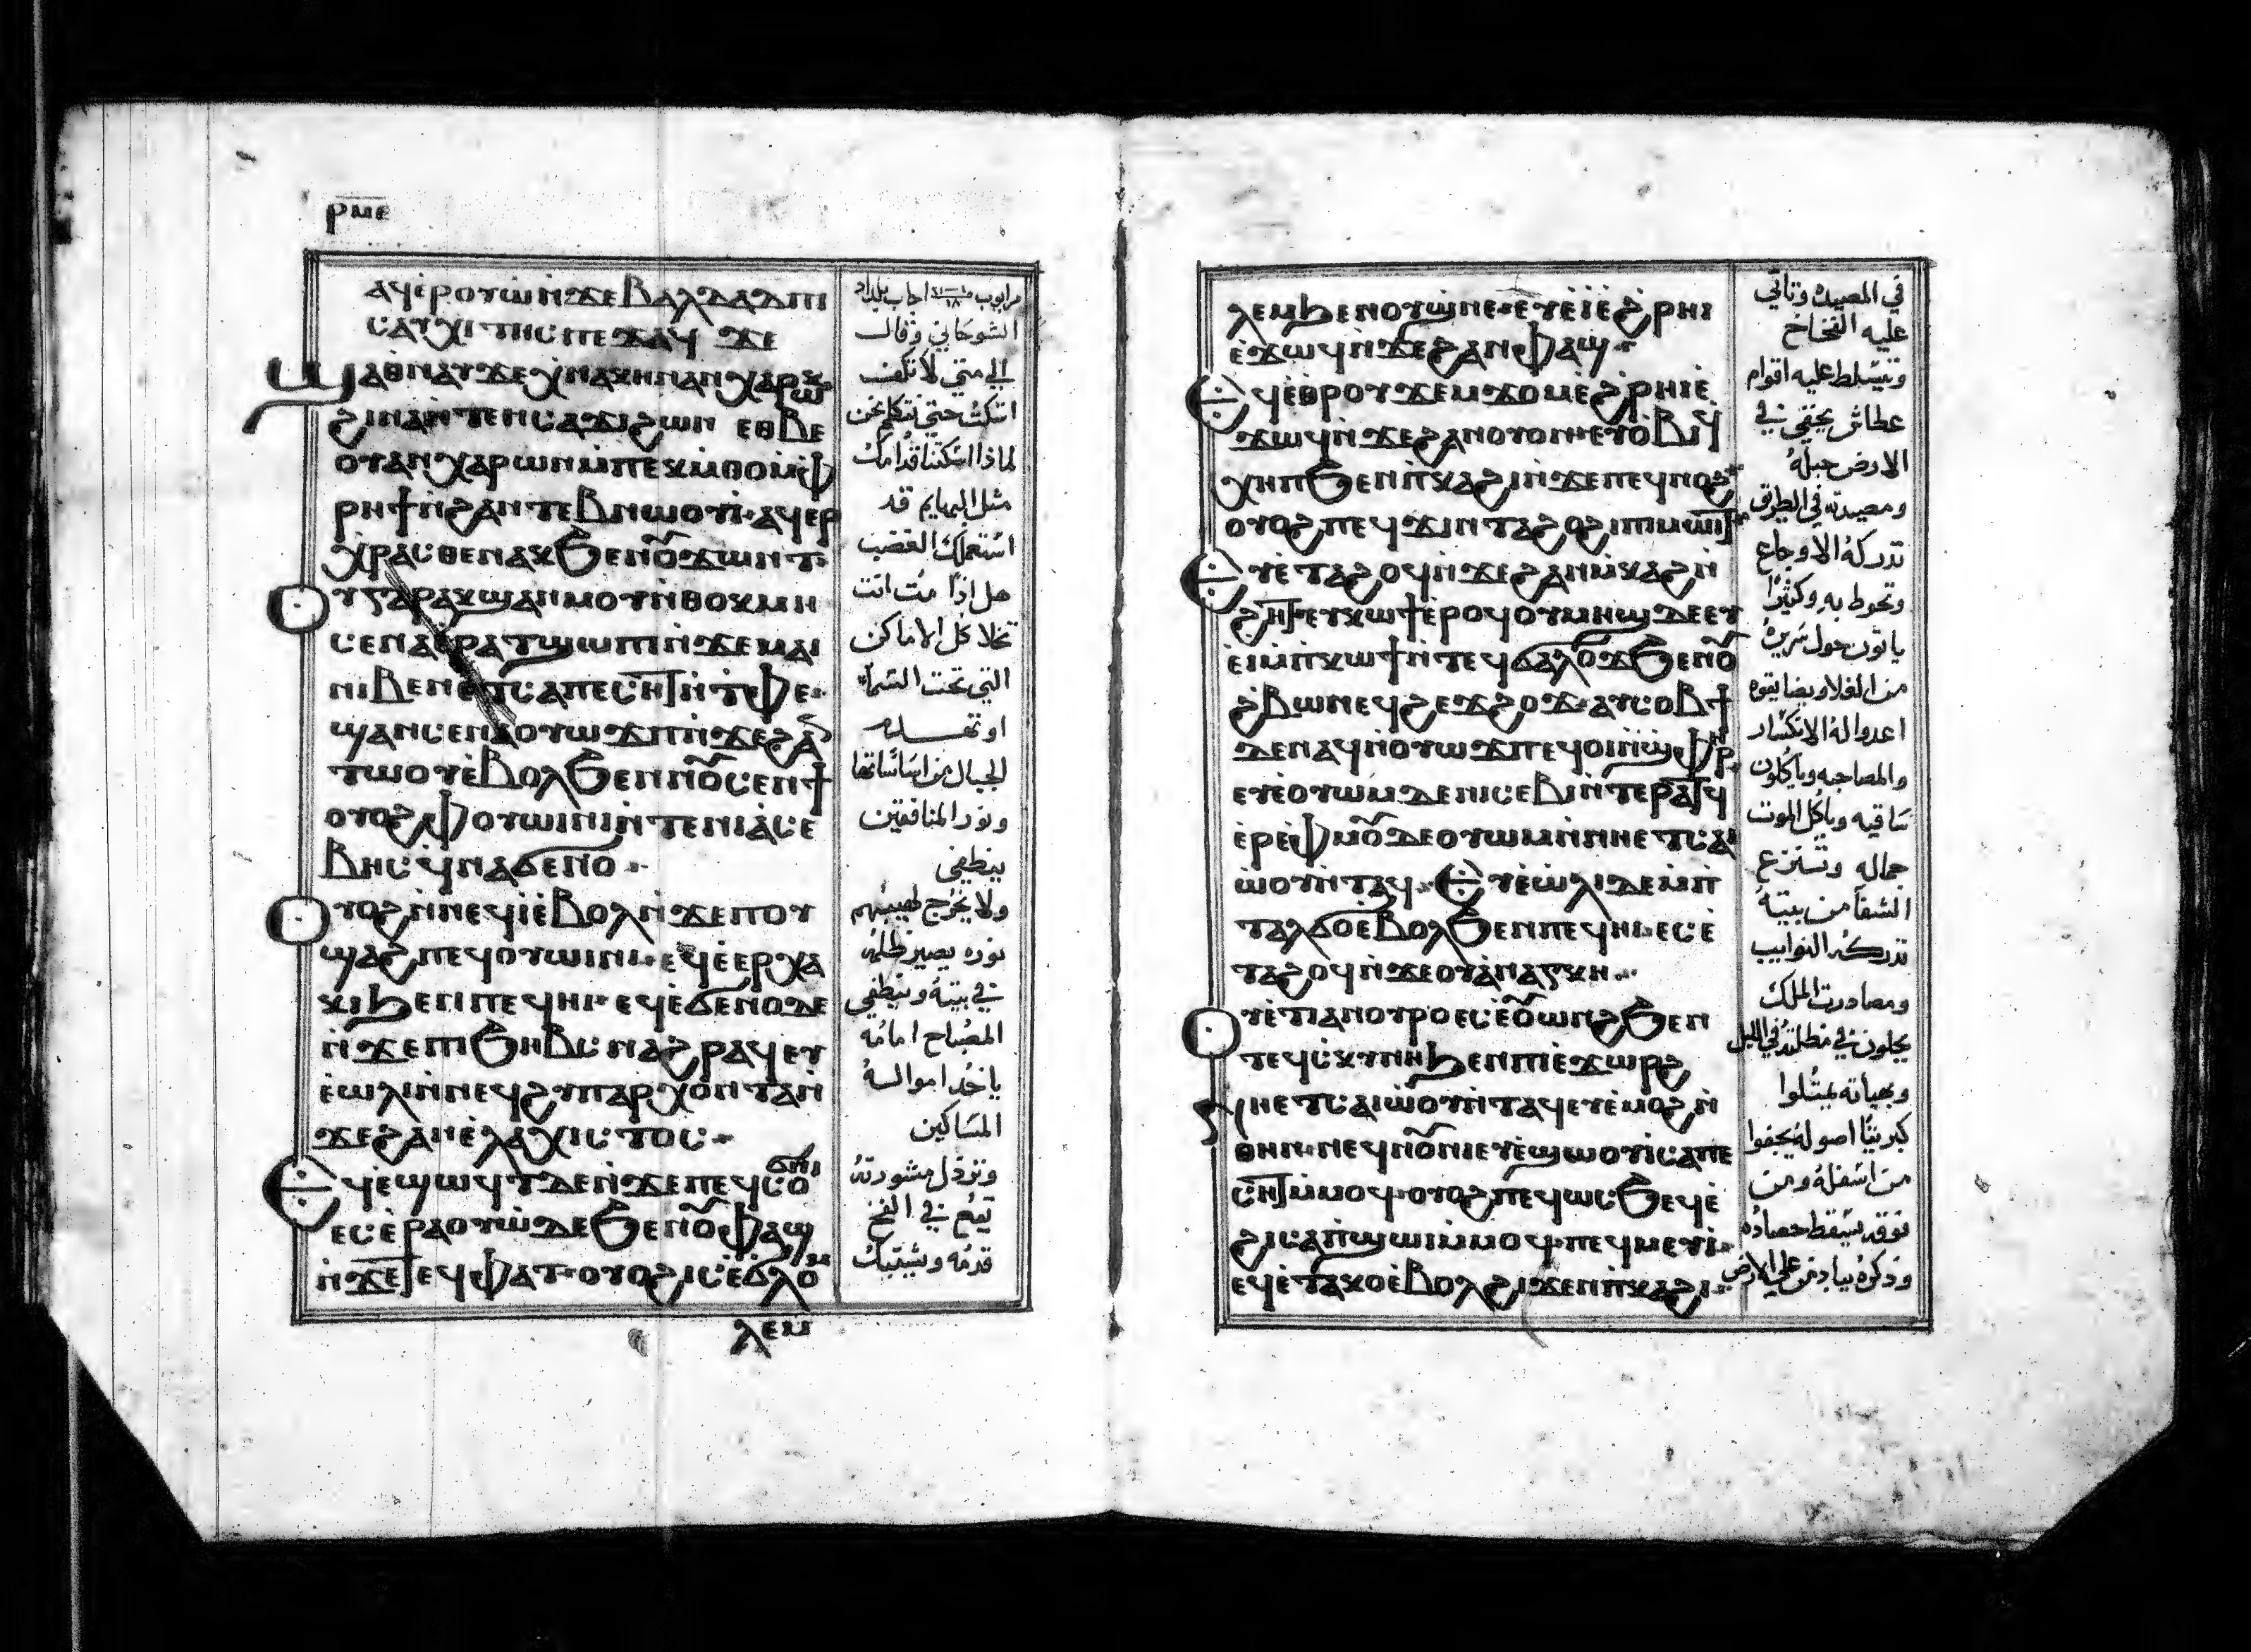 ⲣⲙⲉ
ⲁϥⲉⲣⲟⲩⲱⲛ̀ϫⲉⲃⲁⲗⲇⲁⲇⲡⲓ
ⲥⲁⲩⲭⲓⲧⲏⲥⲡⲉϫⲁϥ ϫⲉ
ϣⲁⲑⲛⲁⲩϫⲉⲭⲛⲁⲭⲏⲛⲁⲛⲭⲁⲣⲱⲕ
ϩⲓⲛⲁⲛ̀ⲧⲉⲛⲥⲁϫⲓϩⲱⲛ ⲉⲑⲃⲉ
ⲟⲩⲁⲛⲭⲁⲣⲱⲛⲙ̀ⲡⲉⲕⲙ̀ⲑⲟⲙ̀ⲫ
ⲣⲏϯⲛ̀ϩⲁⲛⲧⲉⲃⲛⲱⲟⲩⲓ·ⲁϥⲉⲣ
ⲭⲣⲁⲥⲑⲉⲛⲁⲕϧⲉⲛⲟ̅ϫⲱⲛⲧ·
ⲟⲩⲅⲁⲣⲁⲕϣⲁⲛⲙⲟⲩⲛ̀ⲑⲟⲕⲙⲏ
ⲥⲉⲛⲁⲉ̀ⲣⲁⲧϣⲱⲡⲓⲛ̀ϫⲉⲙⲁⲓ
ⲛⲓⲃⲉⲛⲉⲧⲥⲁⲡⲉⲥⲏⲧⲛ̀ⲧⲫⲉ·
ϣⲁⲛⲥⲉⲛⲁⲟⲩⲱϫⲡⲛ̀ϫⲉϩⲁⲛ
ⲧⲱⲟⲩⲉ̀ⲃⲟⲗϧⲉⲛⲛⲟ̅ⲥⲉⲛϯ
ⲟⲩⲟϩⲫⲟⲩⲱⲓⲛⲓⲛ̀ⲧⲉⲛⲓⲁ̀ⲥⲉ
ⲃⲏⲥϥ̀ⲛⲁϭⲉⲛⲟ··
ⲟⲩⲟϩⲛ̀ⲛⲉϥⲓ̀ⲉ̀ⲃⲟⲗⲛ̀ϫⲉⲡⲟⲩ
ϣⲁϩⲡⲉϥⲟⲩⲱⲓⲛⲓ·ⲉϥⲉ̀ⲉⲣⲭⲁ
ⲕⲓϧⲉⲛⲡⲉϥⲏⲓ·ⲉϥⲉ̀ϭⲉⲛⲟϫⲉ
ⲛ̀ϫⲉⲡⲓϧⲏⲃⲥⲛⲁϩⲣⲁϥⲉⲩ
ⲉ̀ⲱⲗⲓⲛ̀ⲛⲉϥϩⲩⲡⲁⲣⲭⲟⲛⲧⲁⲛ̀
ϫⲉϩⲁⲛⲉ̀ⲗⲁⲭⲓⲥⲧⲟⲥ·
ⲉϥⲉ̀ϣⲱϥⲧⲇⲉⲛ̀ϫⲉⲡⲉϥⲥⲟϭⲛⲓ
ⲉⲥⲉ̀ⲣⲁⲟⲩⲱ̀ⲇⲉϧⲉⲛⲟ̅ⲫⲁϣ
ⲛ̀ϫⲉⲧⲉϥⲫⲁⲧ·ⲟⲩⲟϩⲓⲥⲉ̀ϭⲗⲟⲙ
ⲗⲉⲙ
مرايوب اجاب بلداد
الشوحاني وقال
الي متي لا تكف
اسكت حتي نتكلم نحن
لماذا اسكتنا قدامك
مثل البهايم قد
استعملك الغضب
هل اذا مت انت
تخلا كل الاماكن
التي تحت السما
او تنهدم
الجبال من اساساتها
ونور المنافقين
ينطفي
ولا يخرج لهيبهم
نوره يصير ظلمه
في بيته وينطفي
المصباح امامه
ياخد امواله
المساكين
وتزدل مشورته
تقع في الفخ
قدمه وتشتبك
ⲗⲉⲙϧⲉⲛⲟⲩϣⲛⲉ·ⲉⲩⲉ̀ⲓ̀ⲉ̀ϩⲣⲏⲓ
ⲉ̀ϫⲱϥⲛ̀ϫⲉϩⲁⲛⲫⲁϣ·
ⲉϥⲉ̀ⲑⲣⲟⲩϫⲉⲙϫⲟⲙⲉ̀ϩⲣⲏⲓⲉ̀
ϫⲱϥⲛ̀ϫⲉϩⲁⲛⲟⲩⲟⲛ·ⲉⲩⲟⲃⲓϥ
ⲭⲏⲡϧⲉⲛⲡ̀ⲕⲁϩⲓⲛ̀ϫⲉⲡⲉϥⲛⲟϩ
ⲟⲩⲟϩⲡⲉϥϫⲓⲛⲧⲁϩⲟϩⲓⲡⲓⲙⲱⲓⲧ
ⲉⲩⲉ̀ⲧⲁϩⲟϥⲛ̀ϫⲉϩⲁⲛⲙ̀ⲕⲁϩⲛ̀
ϩⲏⲧ·ⲉⲩⲕⲱϯⲉ̀ⲣⲟϥⲟⲩⲙⲏϣⲇⲉⲉⲩ
ⲉ̀ⲓⲙ̀ⲡⲕⲱϯⲛ̀ⲧⲉϥϭⲁⲗⲟϫϧⲉⲛⲟ̅
ϩⲃⲱⲛⲉϥϩⲉϫϩⲟϫ·ⲁⲩⲥⲟⲃϯ
ⲇⲉⲛⲁϥⲛ̀ⲟⲩⲱϫⲡⲉϥⲟⲓⲛ̀ϣⲫⲏⲣ
ⲉⲩⲉ̀ⲟⲩⲱⲙ̀ⲇⲉⲛⲓⲥⲉⲃⲓⲛ̀ⲧⲉⲣⲁⲧϥ
ⲉ̀ⲣⲉⲫⲙⲟ̅ⲇⲉⲟⲩⲱⲙⲛ̀ⲛⲏⲉⲧⲥⲁⲓ
ⲱⲟⲩⲛ̀ⲧⲁϥ· ⲉⲩⲉ̀ⲱⲗⲓⲇⲉⲙ̀ⲡ
ⲧⲁⲗϭⲟⲉ̀ⲃⲟⲗϧⲉⲛⲡⲉϥⲏⲓ·ⲉⲥⲉ̀
ⲧⲁϩⲟϥⲛ̀ϫⲉⲟⲩⲁⲛⲁⲅⲕⲏ··
ⲟⲩⲉⲧⲓⲁⲛⲟⲩⲣⲟⲉⲥⲉ̀ⲟ̅ⲱⲛϩϧⲉⲛ
ⲧⲉϥⲥⲕⲩⲛⲏϧⲉⲛⲡⲓⲉ̀ϫⲱⲣϩ
ⲛⲏⲉⲧⲥⲁⲓⲱⲟⲩⲛ̀ⲧⲁϥⲉⲩⲉ̀ⲙⲟϩⲛ̀
ⲑⲏⲛ·ⲛⲉϥⲛⲟ̅ⲛⲓⲉⲩⲉ̀ϣⲱⲟⲩⲓⲥⲁⲡⲉ
ⲥⲏⲧⲙ̀ⲙⲟϥ·ⲟⲩⲟϩⲡⲉϥⲱⲥϧⲉϥⲉ̀
ϩⲓⲥⲁⲡ̀ϣⲱⲓⲙ̀ⲙⲟϥ·ⲡⲉϥⲙⲉⲩⲓ·
ⲉϥⲉ̀ⲧⲁⲕⲟⲉ̀ⲃⲟⲗϩⲓϫⲉⲛⲡ̀ⲕⲁϩⲓ·
في المصيده وتاتي
عليه الفخاخ
وتتسلط عليه اقوام
عطاش يختفي في
الارض حبله
ومصيدته في الطرق
تدركه الاوجاع
وتحوط به وكثيرًا
ياتون حول سريره
من الغلا ويضايقوه
اعدوا له الانكسار
والمصاحبه وياكلون
ساقيه وياكل الموت
جماله وتنتزع
الشفا من بيته
تدركه النوايب
ومصادرت الملك
يحلون في مظلته في الليل
وبهياته يمتلوا
كبريتًا اصوله يجفوا
من اسفله ومن
فوقه يسقط حصاده
وذكره يباد من علي الارض